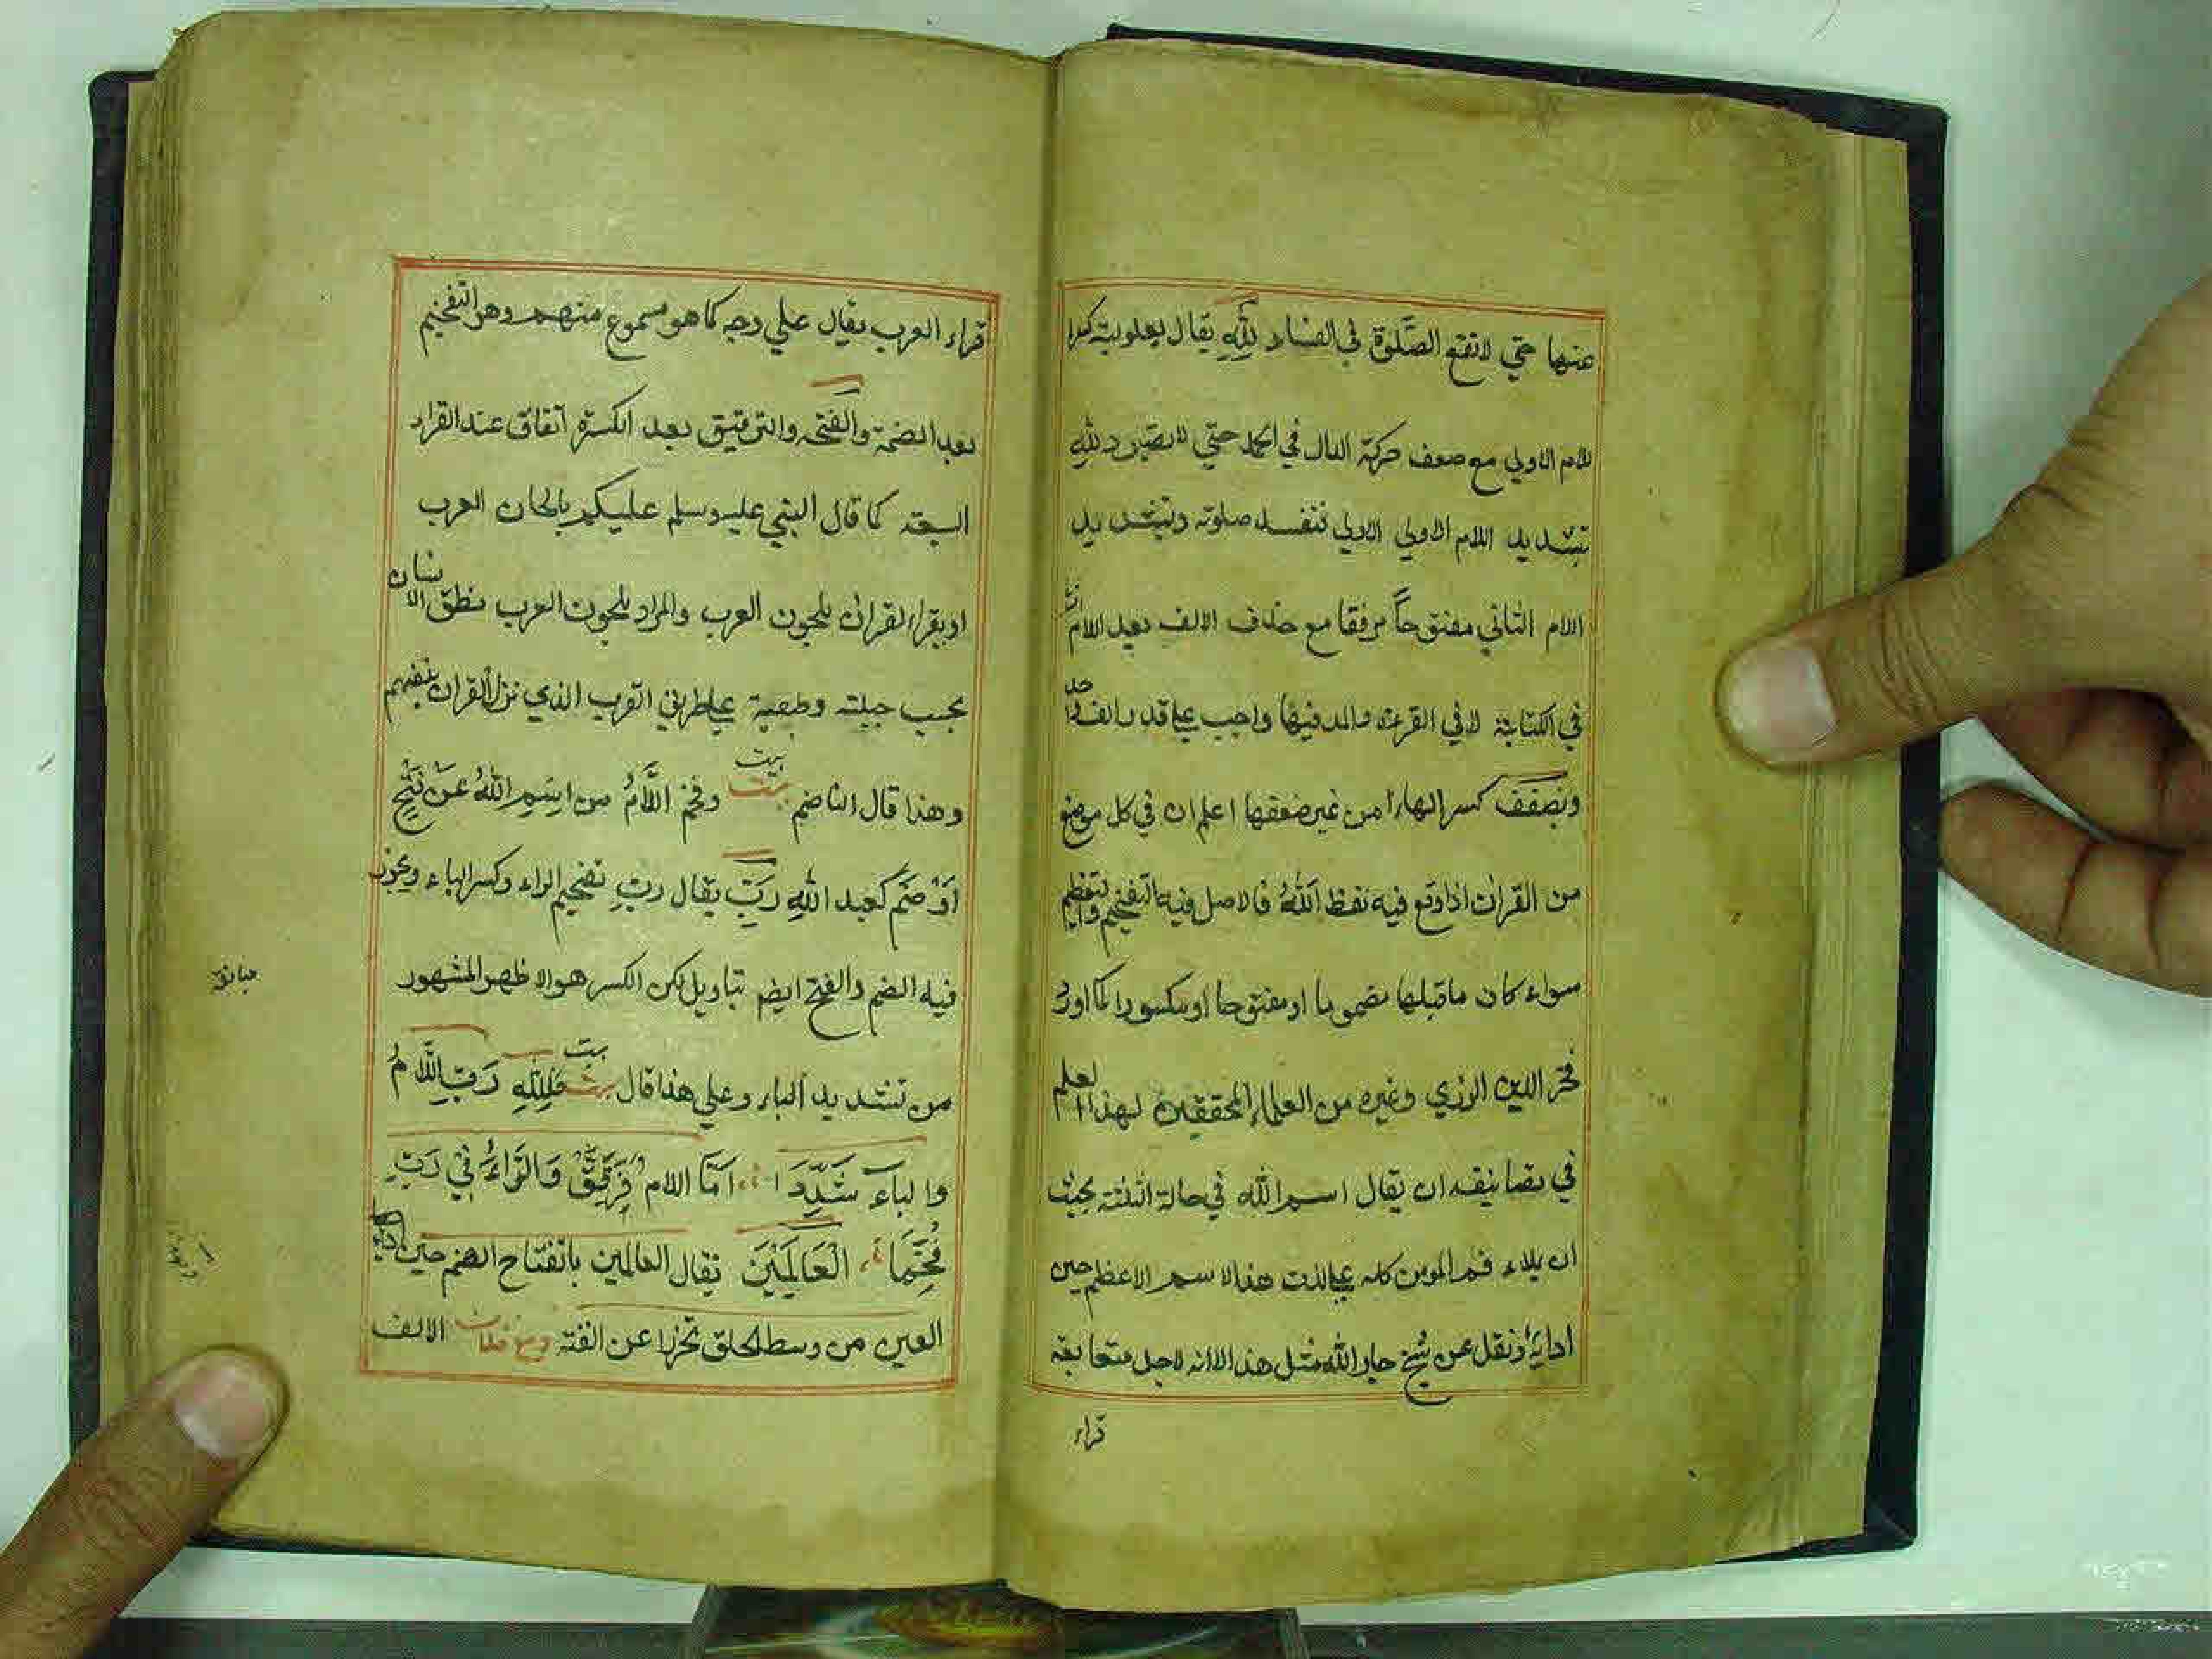 عنها حتي لا تقع الصَّلوة في الفساد لِلّٰهِ يقال بعلوية كسرا
للام الاولي مع ضعف حركة الدال في الحمد حتي لا يصير د لله
تشديد اللام الاولي الاولي فتفسد صلوته وتشديد
اللام الثاني مفتوحاً مرققا مع حذف الالف بعد اللام
في الكتابة لا في القرءة والمد فيها واجب علي قدر الف
ويضعف كسر الهاء من غير ضعفها اعلم ان في كل موضع
من القران اذا وقع فيه لفظ اللهُ فالاصل فيه التفخيم والتعظيم
سواء كان ماقبلها مضموما او مفتوحا او مكسورا كما اورد
فخر الدين الرزي وغيره من العلماء المحققين لهذا العلم
في تصانيفه ان يقال اسم الله في حالة الثلثة بحيث
ان يلاء فم المومن كله علي لذت هذا الاسم الاعظم حين
ادائه ونقل عن شيخ جار الله مثل هذا الا انه لاجل متعابعة
قراء
قراء العرب يقال علي وجه كما هو مسموع منهم وهو التفخيم
بعد الضمة والفتحه والترقيق بعد الكسرة اتفاق عند القراء
السبعة كما قال النبي عليه وسلم عليكم بالحان العرب
او يقراء القران بلحون العرب والمراد بلحون العرب نطق الانسان
بحسب جبلته وطبعية علي طريق العرب الذي نزل القران بلغتهم
وهذا قال الناضم بيت وفخم اللَّامُ من اِسْمِ اللهُ عَنْ فَتْحٍ
اَوْ ضَمٍّ كعبد اللهِ رَبِّ يقال ربّ بتفخيم الراء وكسر الباء ويجوز
فيه الضم والفتح ايضم بتاويل لكن الكسر هو الاظهر المشهور
من تشديد الباء وعلي هذا قال بيت لِلّٰهِ رَبِّ اللَّامُ
والباءَ شَدِّدَا اَمَّا اللام فَرَقِّقْ وَالرَّاءُ فِي رَبِّ
فُخِّمَا الْعَالَمِيْنَ يقال العالمين بانفتاح الفم حين اداء
العين من وسط الحلق تحرزا عن الفتة الالف